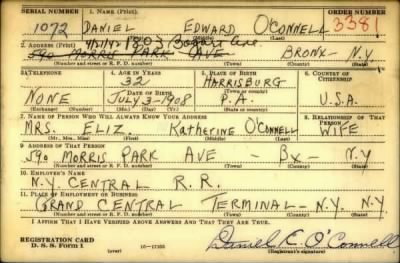 SERIAL NUMBER 1. NAME (Print) ORDER NUMBER
1072 DANIEL EDWARD O'CONNELL 3381
(First) (Middle) (Last)
1803 Bogart Ave.
2. ADDRESS (Print)
590 MORRIS PARK AVE BRONX N.Y
(Number and street or R. F. D. number) (Town) (County) (State)
3. TELEPHONE 4. AGE IN YEARS 5. PLACE OF BIRTH 6. COUNTRY OF CITIZENSHIP
32 HARRISBURG
DATE OF BIRTH (Town or county)
NONE JULY 3-1908 P.A. U.S.A.
(Exchange) (No.) (Mo.) (Day) (Yr.) (State or country)
7. NAME OF PERSON WHO WILL ALWAYS KNOW YOUR ADDRESS 8. RELATIONSHIP OF THAT PERSON
MRS. ELIZ. KATHERINE O'CONNELL WIFE
(Mr., Mrs., Miss) (First) (Middle) (Last)
9. ADDRESS OF THAT PERSON
590 MORRIS PARK AVE - BX - N.Y
(Number and street or R. F. D. number) (Town) (County) (State)
10. EMPLOYER'S NAME
N.Y. CENTRAL R.R.
11. PLACE OF EMPLOYMENT OR BUSINESS
GRAND CENTRAL TERMINAL - N.Y. N.Y.
(Number and street or R. F. D. number) (Town) (County) (State)
I AFFIRM THAT I HAVE VERIFIED ABOVE ANSWERS AND THAT THEY ARE TRUE.
REGISTRATION CARD
D. S. S. Form 1 (over) Daniel E. O'Connell
(Registrant's signature)